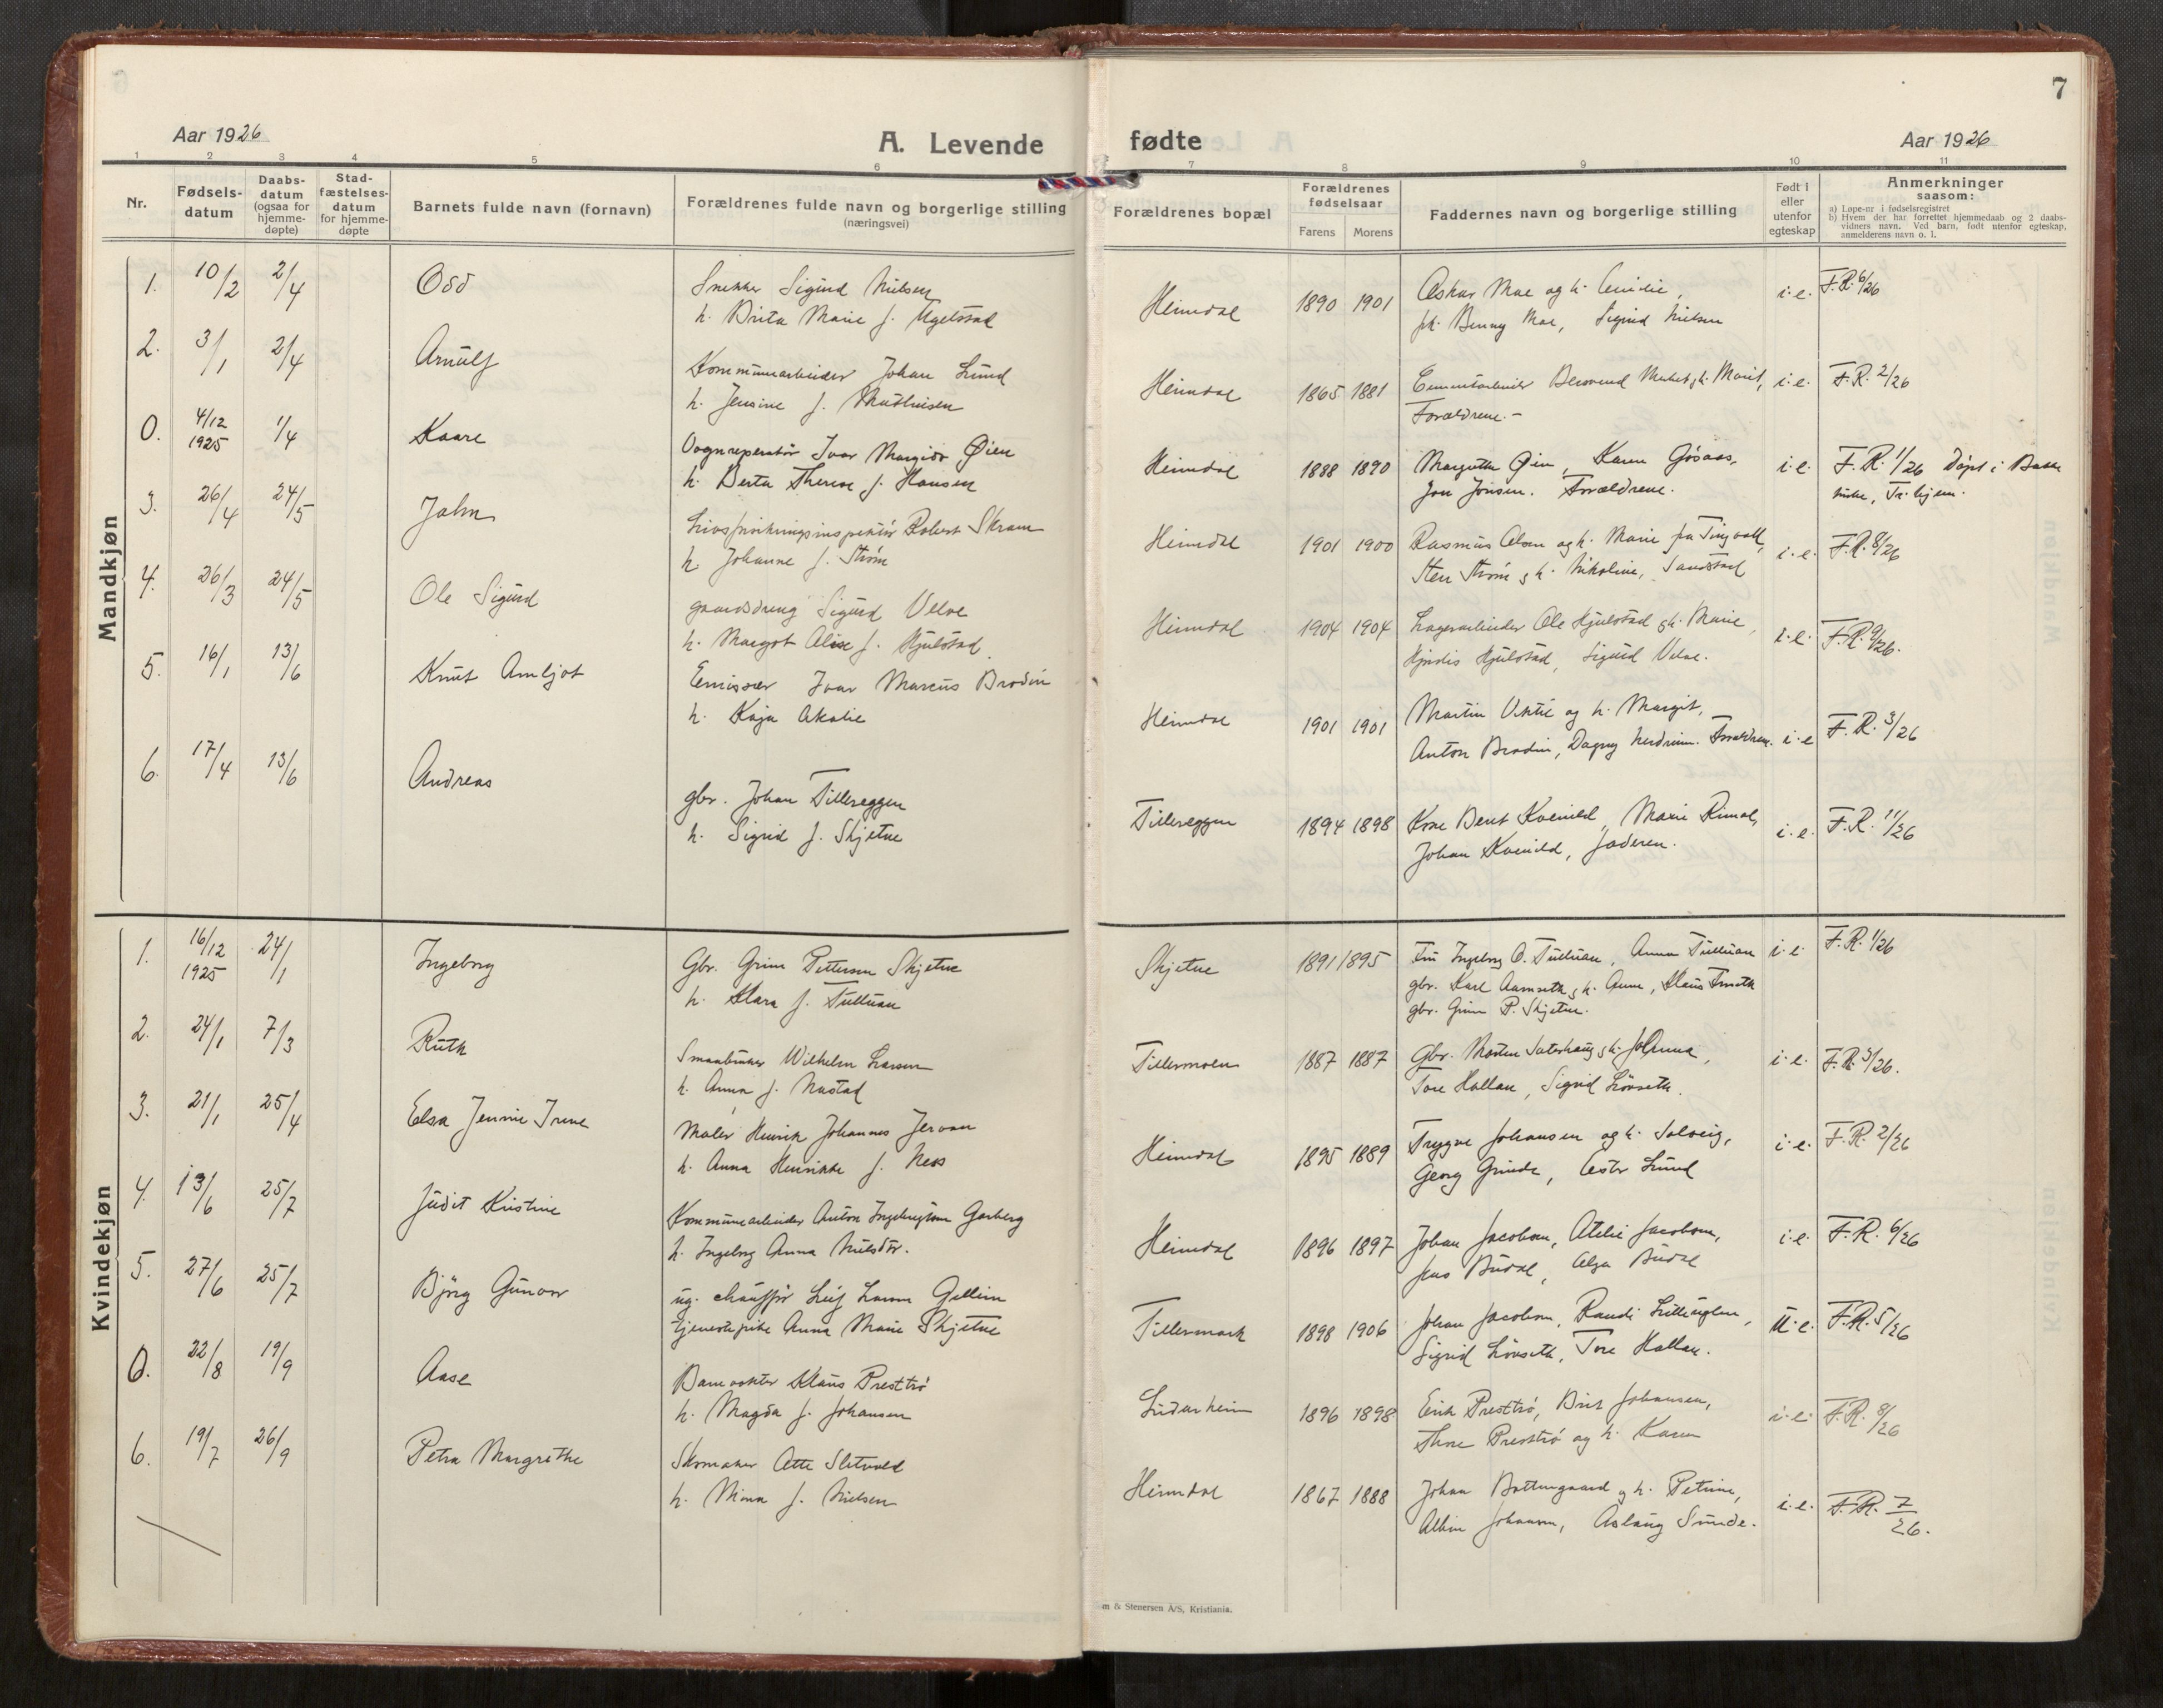 Aar 1926
A. Levende
1 2 3 4 5 6
Nr.
Fødsels-
datum
Daabs-
datum
(ogsaa for
hjemme-
døpte)
Stad-
fæstelses-
datum
for hjemme-
døpte
Barnets fulde navn (fornavn)
Forældrenes fulde navn og borgerlige stilling
(næringsvei)
Mandkjøn
1. 10/2 2/4 Odd Snekker Sigurd Nielsen
h. Brita Marie f. Ugelstad
2. 3/1 2/4 Arnulf Kommunearbeider Johan Lund
h. Jensine f. Mathisen
0. 4/12 1925 1/4 Kaare Vognreperatør Ivar Margido Øien
h. Berta Therese f. Hansen
3. 26/4 24/5 John Livsforsikringsinspektør Robert Skram
h. Johanne f. Strøm
4. 26/3 24/5 Ole Sigurd gaardsdreng Sigurd Velve
h. Margot Alise f. Hjulstad
5. 16/1 13/6 Knut Arnljot Emissær Ivar Marcus Brodin
h. Kaja Akalie
6. 17/4 13/6 Andreas gbr. Johan Tillereggen
h. Sigrid f. Skjetne
Kvindekjøn
1. 16/12 1925 24/1 Ingeborg Gbr. Grim Pettersen Skjetne
h. Klara f. Tulluan
2. 24/1 7/3 Ruth Smaabruker Wilhelm Larsen
h. Anna f. Nustad
3. 21/1 25/4 Elsa Jennie Irene Maler Henrik Johannes Jervan
h. Anna Henrikke f. Ness
4. 13/6 25/7 Judit Kristine Kommunearbeider Anton Ingebrigtsen Garberg
h. Ingeborg Anna Nilsdtr.
5. 27/6 25/7 Bjørg Gunvor ug. chauffør Leif Larsen Gellein
tjenestepike Anna Marie Skjetne
0. 22/8 19/9 Aase Banevokter Klaus Presttrø
h. Magda f. Johansen
6. 19/7 26/9 Petra Margrethe Skomaker Atte Sletvold
h. Mina f. Nielsen
7
fødte
Aar 1926
7 8 9 10 11
Forældrenes bopæl
Forældrenes
fødselsaar
Farens Morens
Faddernes navn og borgerlige stilling
Født i
eller
utenfor
egteskap
Anmerkninger
saasom:
a) Løpe-nr i fødselsregistret
b) Hvem der har forrettet hjemmedaab og 2 daabs-
vidners navn. Ved barn, født utenfor egteskap,
anmelderens navn o. l.
Heimdal 1890 1901 Oskar Moe og h. Emilie, i.e. F.R. 6/26
frk. Benny Moe, Sigurd Nielsen
Heimdal 1865 1881 Cementarbeider h. Marit, i.e. F.R. 2/26
Forældrene.-
Heimdal 1888 1890 Margrethe Øien, Karen Gåsaas, i.e. F.R. 1/26 Døpt i
Jon Jonsen. Forældrene. kirke, Tr.hjem.
Heimdal 1901 1900 Rasmus Olsen og h. Marie fra Tingvoll, i.e. F.R. 8/26
Sten Strøm og h. Nikoline, Sandstad
Heimdal 1904 1904 Lagerarbeider Ole Hjulstad og h. Marie, i.e. F.R. 9/26.
Hjørdis Hjulstad, Sigurd Velve.
Heimdal 1901 1901 Martin Viktil og h. Margit, i.e F.R. 3/26
Anton Brodin, Dagny Nerdrum. Forældrene.
Tillereggen 1894 1898 Kone Berit Kvenild, Marie Rimol, i.e. F.R. 11/26
Johan Kvenild, faderen.
Skjetne 1891 1895 Fru Ingeborg O. Tulluan, Anna Tulluan i.e. F.R. 1/26
gbr. Karl Aamseth og h. Anne, Klaus Truseth
gbr. Grim P. Skjetne.
Tillermoen 1887 1887 Gbr. Morten Sæterhaug og h. Johanna, i.e. F.R. 3/26.
Tore Hallan, Sigrid Løvseth.
Heimdal 1895 1889 Trygve Johansen og h. Solveig, i.e. F.R. 2/26
Georg Grinde, Ester Lund
Heimdal 1896 1897 Johan Jacobsen, Atelie Jacobsen, i.e. F.R. 6/26
Jens Budal, Olga Budal
Tillermark 1898 1906 Johan Jacobsen, Randi Lilleuglen, u.e. F.R. 5/26
Sigrid Løvseth, Tore Hallan.
Sudarheim 1896 1898 Erik Presttrø, Brit Johansen, i.e. F.R. 8/26
Thore Presttrø og h. Karen
Heimdal 1867 1888 Johan Bottengaard og h. Petrine, i.e. F.R. 7/26.
Albin Johansen, Aslaug Sunde.
m & Stenersen A/S, Kristiania.